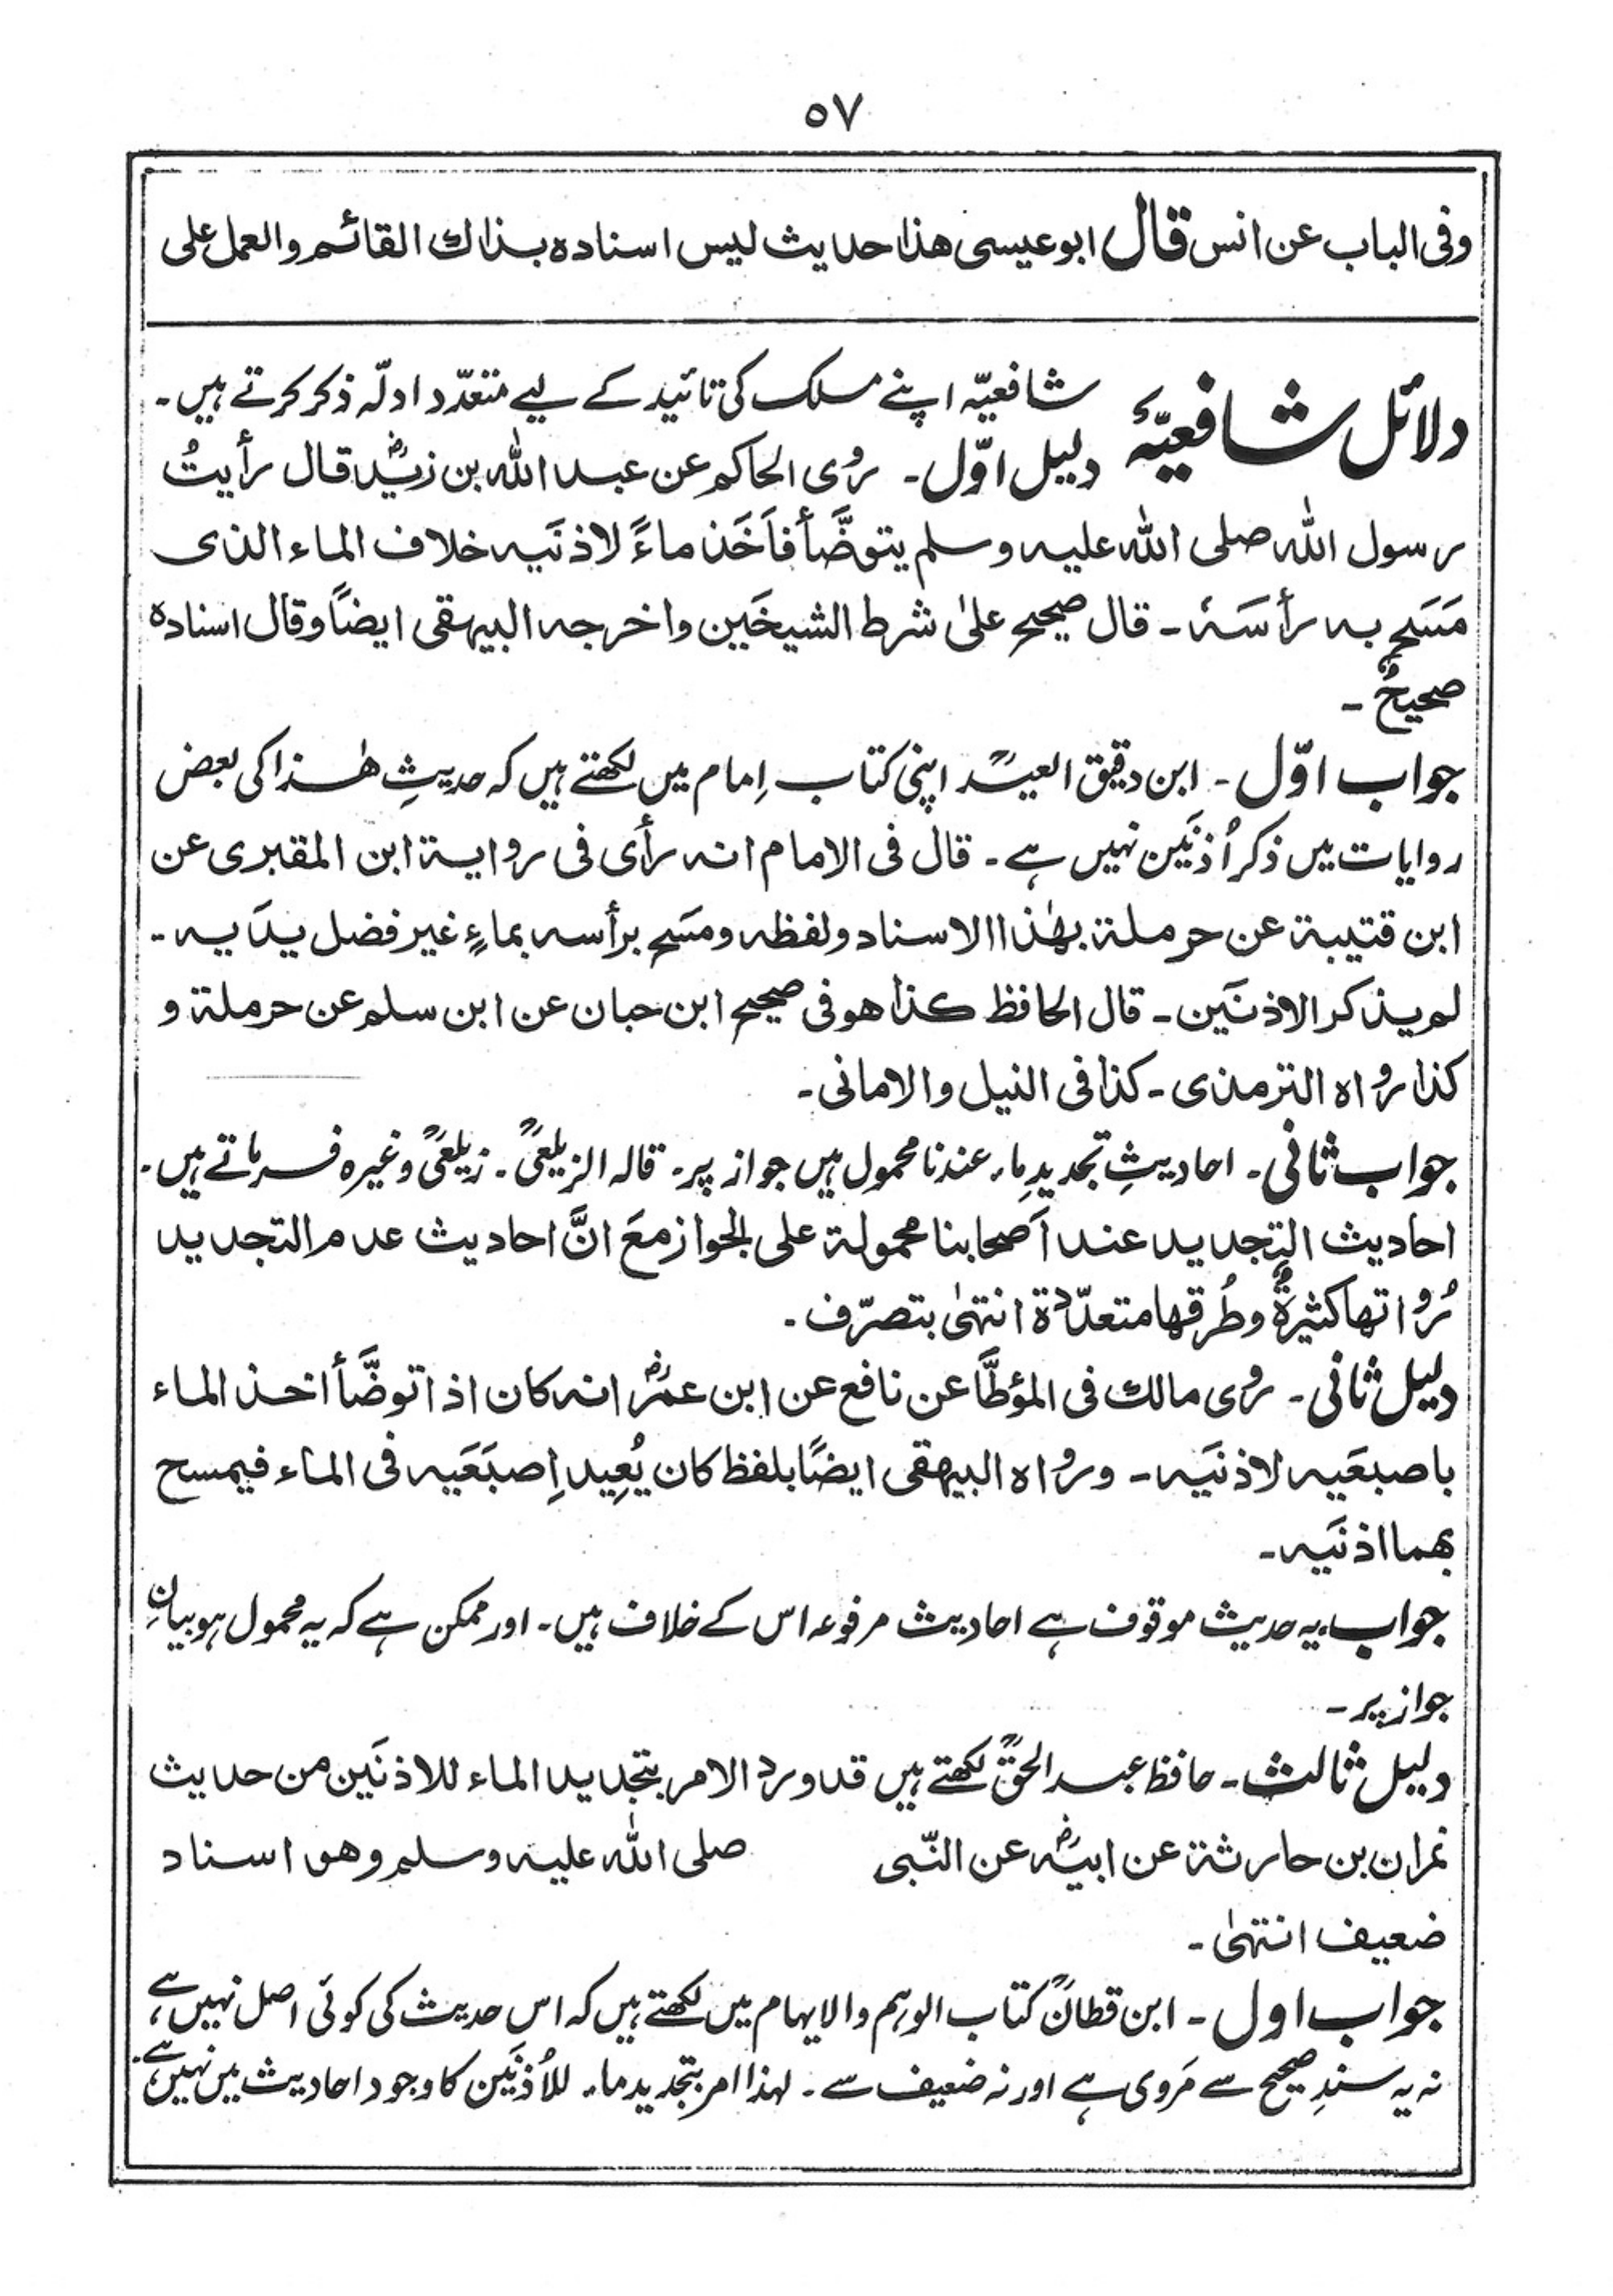 ۵۷
وفی الباب عن انس قال ابوعیسی هذا حدیث لیس اسناده بذاك القائم والعمل علی
دلائل شافعیہؒ
شافعیّہ اپنے مسلک کی تائید کے لیے متعدّد ادلّہ ذکر کرتے ہیں۔
دلیل اوّل۔ روی الحاکم عن عبد اللّٰہ بن زیدؓ قال رأیتُ
رسول اللّٰہ صلی اللّٰہ علیہ وسلم یتوضَّأ فاَخَذ ماءً لاذنَیہ خلاف الماء الذی
مَسَح بہ رأسَہٗ۔ قال صحیح علیٰ شرط الشیخَین واخرجہ البیہقی ایضًا وقال اسنادہ
صحیحٌ۔
جواب اوّل۔ ابن دقیق العیدؒ اپنی کتاب اِمام میں لکھتے ہیں کہ حدیثِ ھٰذا کی بعض
روایات میں ذکر اُذنَین نہیں ہے۔ قال فی الامام انہ رأی فی روایۃ ابن المقبری عن
ابن قتیبۃ عن حرملۃ بھٰذا الاسناد ولفظہ ومسَح برأسہ بماءٍ غیر فضل یدَیہ۔
لم یذکر الاذنَین۔ قال الحافظ کذا هو فی صحیح ابن حبان عن ابن سلم عن حرملۃ و
کذا رواہ الترمذی۔ کذا فی النیل والامانی۔
جواب ثانی۔ احادیثِ تجدیدِ ماء عندنا محمول ہیں جواز پر۔ قالہ الزیلعیؒ۔ زیلعیؒ وغیرہ فرماتے ہیں۔
احادیث التجدید عند اَصحابنا محمولۃ علی الجواز معَ انَّ احادیث عدم التجدید
رُواتھا کثیرۃٌ وطُرقھا متعدّدۃ انتہیٰ بتصرّف۔
دلیل ثانی۔ روی مالك فی المؤطَّا عن نافع عن ابن عمرؓ انہ کان اذا توضَّأ اخذ الماء
باصبعَیہ لاذنَیہ۔ ورواہ البیھقی ایضًا بلفظ کان یُعِید اِصبَعَیہ فی الماء فیمسح
بھما اذنَیہ۔
جواب، یہ حدیث موقوف ہے احادیث مرفوعہ اس کے خلاف ہیں۔ اور ممکن ہے کہ یہ محمول ہو بیانِ
جواز پر۔
دلیل ثالث۔ حافظ عبد الحقؒ لکھتے ہیں قد ورد الامر بتجدید الماء للاذنَین من حدیث
نمران بن حارثۃ عن ابیہؓ عن النّبی صلی اللّٰہ علیہ وسلم وھو اسناد
ضعیف انتہیٰ۔
جواب اول۔ ابن قطانؒ کتاب الوہم والایہام میں لکھتے ہیں کہ اس حدیث کی کوئی اصل نہیں ہے،
نہ یہ سندِ صحیح سے مَروی ہے اور نہ ضعیف سے۔ لہذا امر بتجدید ماء للاُذنَین کا وجود احادیث میں نہیں ہے۔